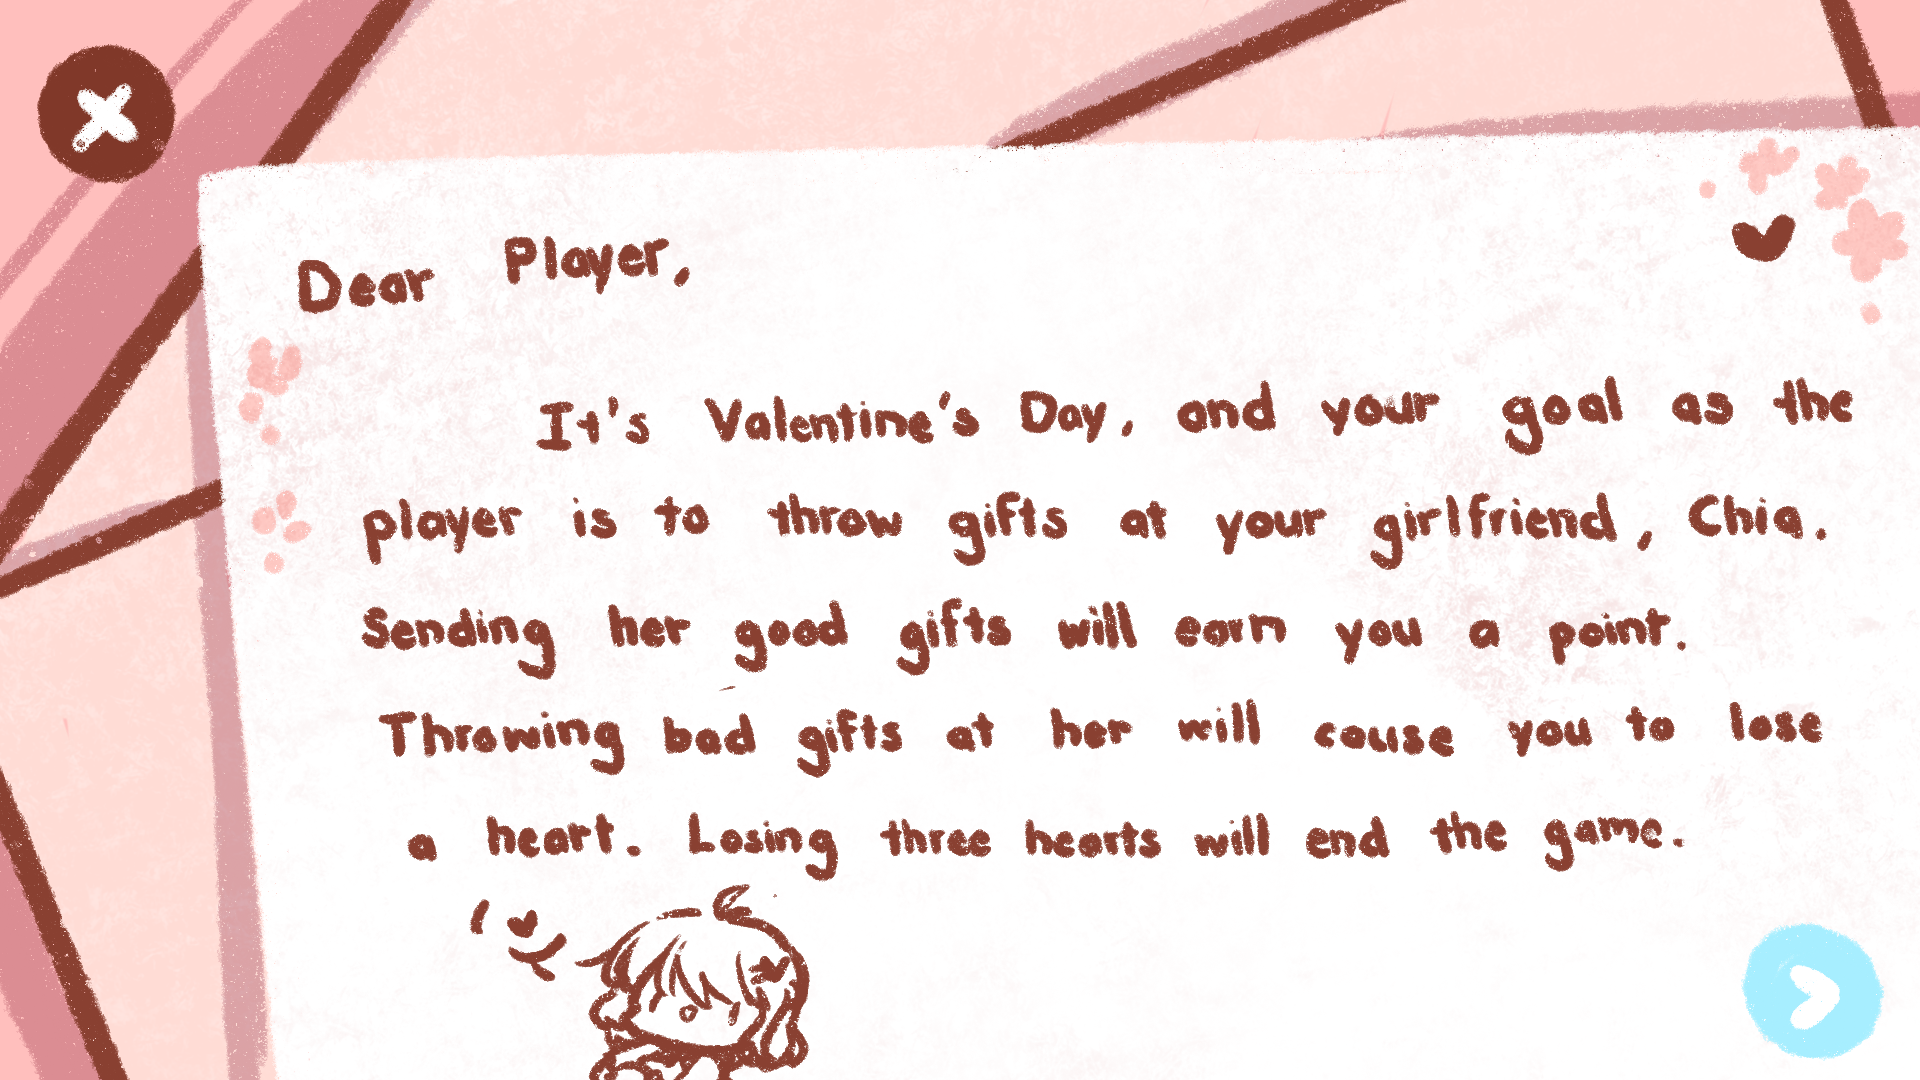 Dear Player,
It's Valentine's Day, and your goal as the
player is to throw gifts at your girlfriend, Chia.
Sending her good gifts will earn you a point.
Throwing bad gifts at her will cause you to lose
a heart. Losing three hearts will end the game.